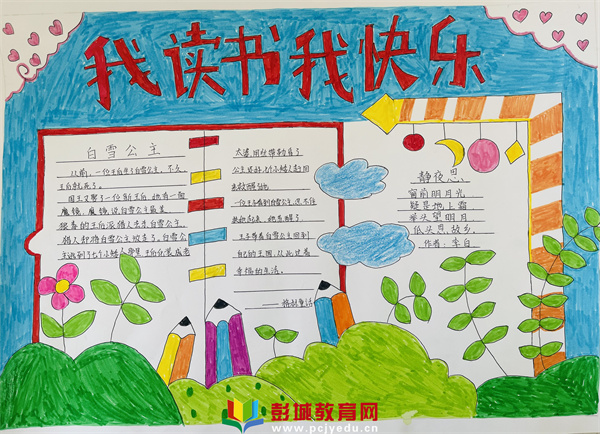 我读书我快乐
白雪公主
从前,一位王后生了白雪公主,不久,
王后就死了。
国王又娶了一位新王后,她有一面
魔镜,魔镜说白雪公主最美,
狠毒的王后派猎人去杀白雪公主,
猎人却将白雪公主放走了。白雪公
主逃到了七个小矮人那里,王后装成老
太婆,用丝带勒白了
公主,幸好七个小矮人及时
救醒了她
王子带着白雪公主回到
自己的王国,从此过着
幸福的生活。
——格林童话
静夜思
窗前明月光
疑是地上霜
举头望明月
低头思故乡。
作者:李白
彭城教育网
www.pcjyedu.cn